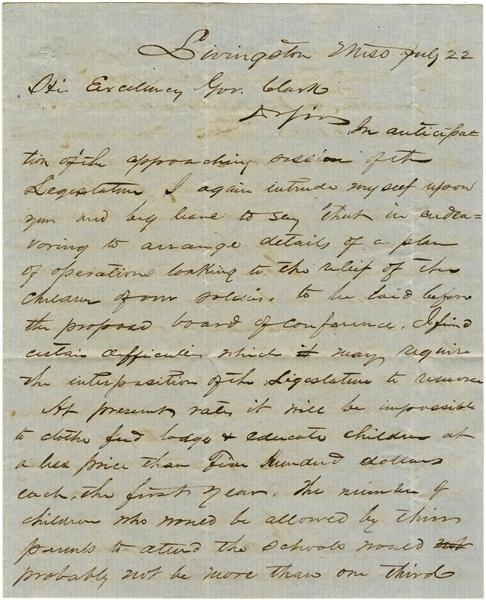 Livingston Miss July 22
His Excellency Gov. Clark
Dr Sir
In anticipa
tion of the approaching session of the
Legislature I again intrude myself upon
you and beg leave to say that in endea=
voring to arrange details of a plan
of operations looking to the relief of the
children of our soldiers. to be laid before
the proposed board of conference. I find
certain difficulties which it may require
the interposition of the Legislature to remove
At present rates it will be impossible
to clothe feed lodge & educate children at
a less price than Five Hundred dollars
each, the first year. The number of
children who would be allowed by their
parents to attend the schools would not
probably not be more than one third